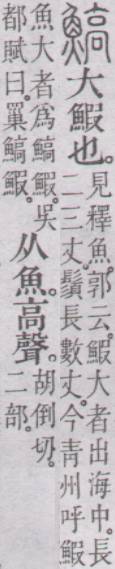 鰝大鰕也。見釋魚。郭云。鰕大者出海中。長
二三丈。鬚長數丈。今靑州呼鰕
魚大者爲鰝鰕。吳
都賦曰。罺鰝鰕。
从魚。高聲。胡倒切。
二部。